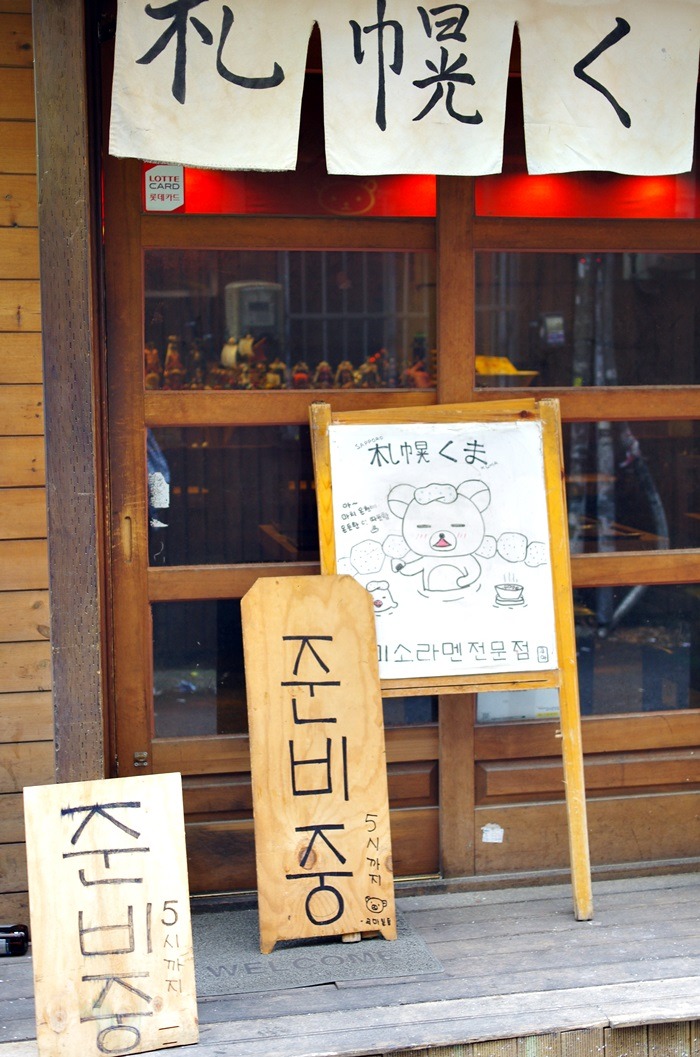 札幌く
LOTTE
CARD
롯데카드
SAPPORO
札幌くま
아~
미소라멘전문점
준비중
5시까지
준비중
5시까지
WELCOME